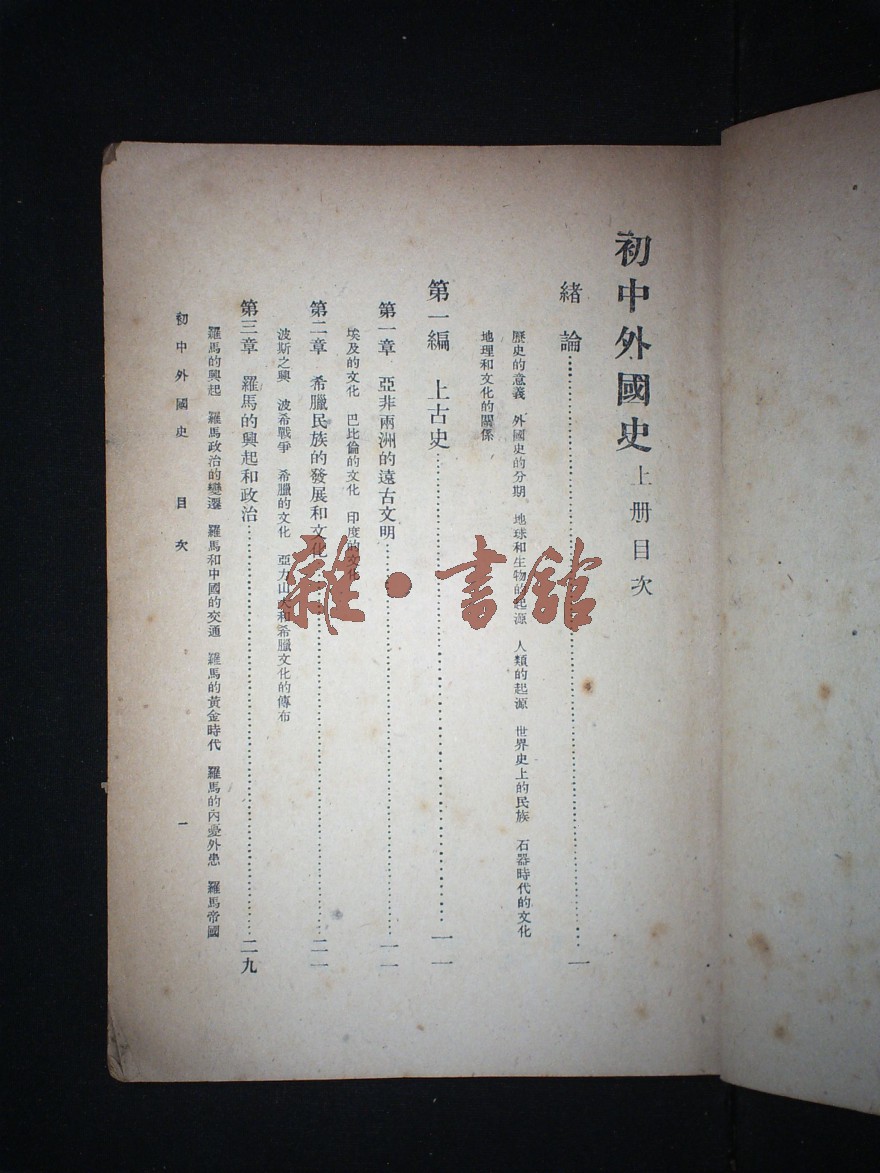 初中外國史 上册目次
緒論………一
歷史的意義 外國史的分期 地球和生物的起源 人類的起源 世界史上的民族 石器時代的文化
地理和文化的關係
第一編 上古史………一一
第一章 亞非兩洲的遠古文明………一一
埃及的文化 巴比倫的文化 印度的文化
第二章 希臘民族的發展和文化………二一
波斯之興 波希戰爭 希臘的文化 亞力山大和希臘文化的傳布
第三章 羅馬的興起和政治………二九
羅馬的興起 羅馬政治的變遷 羅馬和中國的交通 羅馬的黃金時代 羅馬的內憂外患 羅馬帝國
初中外國史 目次 一
雜·書館